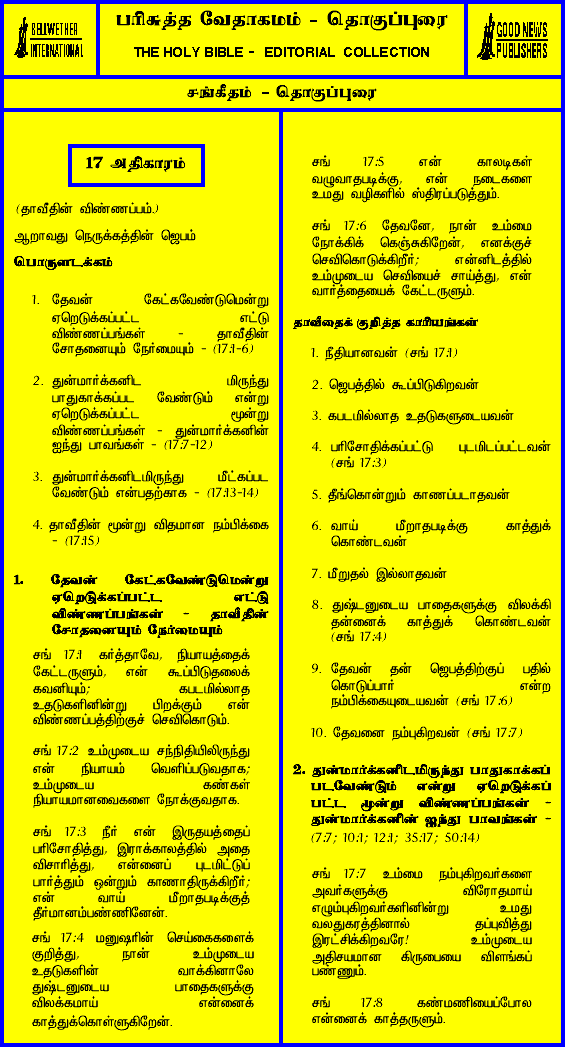 BELLWETHER
INTERNATIONAL
பரிசுத்த வேதாகமம் - தொகுப்புரை
THE HOLY BIBLE - EDITORIAL COLLECTION
GOOD NEWS
PUBLISHERS
சங்கீதம் - தொகுப்புரை
17 அதிகாரம்
(தாவீதின் விண்ணப்பம்.)
ஆறாவது நெருக்கத்தின் ஜெபம்
பொருளடக்கம்
1. தேவன் கேட்கவேண்டுமென்று
ஏறெடுக்கப்பட்ட எட்டு
விண்ணப்பங்கள் - தாவீதின்
சோதனையும் நேர்மையும் - (17:1-6)
2. துன்மார்க்கனிட மிருந்து
பாதுகாக்கப்பட வேண்டும் என்று
ஏறெடுக்கப்பட்ட மூன்று
விண்ணப்பங்கள் - துன்மார்க்கனின்
ஐந்து பாவங்கள் - (17:7-12)
3. துன்மார்க்கனிடமிருந்து மீட்கப்பட
வேண்டும் என்பதற்காக - (17:13-14)
4. தாவீதின் மூன்று விதமான நம்பிக்கை
- (17:15)
1. தேவன் கேட்கவேண்டுமென்று
ஏறெடுக்கப்பட்ட எட்டு
விண்ணப்பங்கள் - தாவீதின்
சோதனையும் நேர்மையும்
சங் 17:1 கர்த்தாவே, நியாயத்தைக்
கேட்டருளும், என் கூப்பிடுதலைக்
கவனியும்; கபடமில்லாத
உதடுகளினின்று பிறக்கும் என்
விண்ணப்பத்திற்குச் செவிகொடும்.
சங் 17:2 உம்முடைய சந்நிதியிலிருந்து
என் நியாயம் வெளிப்படுவதாக;
உம்முடைய கண்கள்
நியாயமானவைகளை நோக்குவதாக.
சங் 17:3 நீர் என் இருதயத்தைப்
பரிசோதித்து, இராக்காலத்தில் அதை
விசாரித்து, என்னைப் புடமிட்டுப்
பார்த்தும் ஒன்றும் காணாதிருக்கிறீர்;
என் வாய் மீறாதபடிக்குத்
தீர்மானம்பண்ணினேன்.
சங் 17:4 மனுஷரின் செய்கைகளைக்
குறித்து, நான் உம்முடைய
உதடுகளின் வாக்கினாலே
துஷ்டனுடைய பாதைகளுக்கு
விலக்கமாய் என்னைக்
காத்துக்கொள்ளுகிறேன்.
சங் 17:5 என் காலடிகள்
வழுவாதபடிக்கு, என் நடைகளை
உமது வழிகளில் ஸ்திரப்படுத்தும்.
சங் 17:6 தேவனே, நான் உம்மை
நோக்கிக் கெஞ்சுகிறேன், எனக்குச்
செவிகொடுக்கிறீர்; என்னிடத்தில்
உம்முடைய செவியைச் சாய்த்து, என்
வார்த்தையைக் கேட்டருளும்.
தாவீதைக் குறித்த காரியங்கள்
1. நீதியானவன் (சங் 17:1)
2. ஜெபத்தில் கூப்பிடுகிறவன்
3. கபடமில்லாத உதடுகளுடையவன்
4. பரிசோதிக்கப்பட்டு புடமிடப்பட்டவன்
(சங் 17:3)
5. தீங்கொன்றும் காணப்படாதவன்
6. வாய் மீறாதபடிக்கு காத்துக்
கொண்டவன்
7. மீறுதல் இல்லாதவன்
8. துஷ்டனுடைய பாதைகளுக்கு விலக்கி
தன்னைக் காத்துக் கொண்டவன்
(சங் 17:4)
9. தேவன் தன் ஜெபத்திற்குப் பதில்
கொடுப்பார் என்ற
நம்பிக்கையுடையவன் (சங் 17:6)
10. தேவனை நம்புகிறவன் (சங் 17:7)
2. துன்மார்க்கனிடமிருந்து பாதுகாக்கப்
படவேண்டும் என்று ஏறெடுக்கப்
பட்ட மூன்று விண்ணப்பங்கள் -
துன்மார்க்கனின் ஐந்து பாவங்கள் -
(7:7; 10:1; 12:1; 35:17; 50:14)
சங் 17:7 உம்மை நம்புகிறவர்களை
அவர்களுக்கு விரோதமாய்
எழும்புகிறவர்களினின்று உமது
வலதுகரத்தினால் தப்புவித்து
இரட்சிக்கிறவரே! உம்முடைய
அதிசயமான கிருபையை விளங்கப்
பண்ணும்.
சங் 17:8 கண்மணியைப்போல
என்னைக் காத்தருளும்.